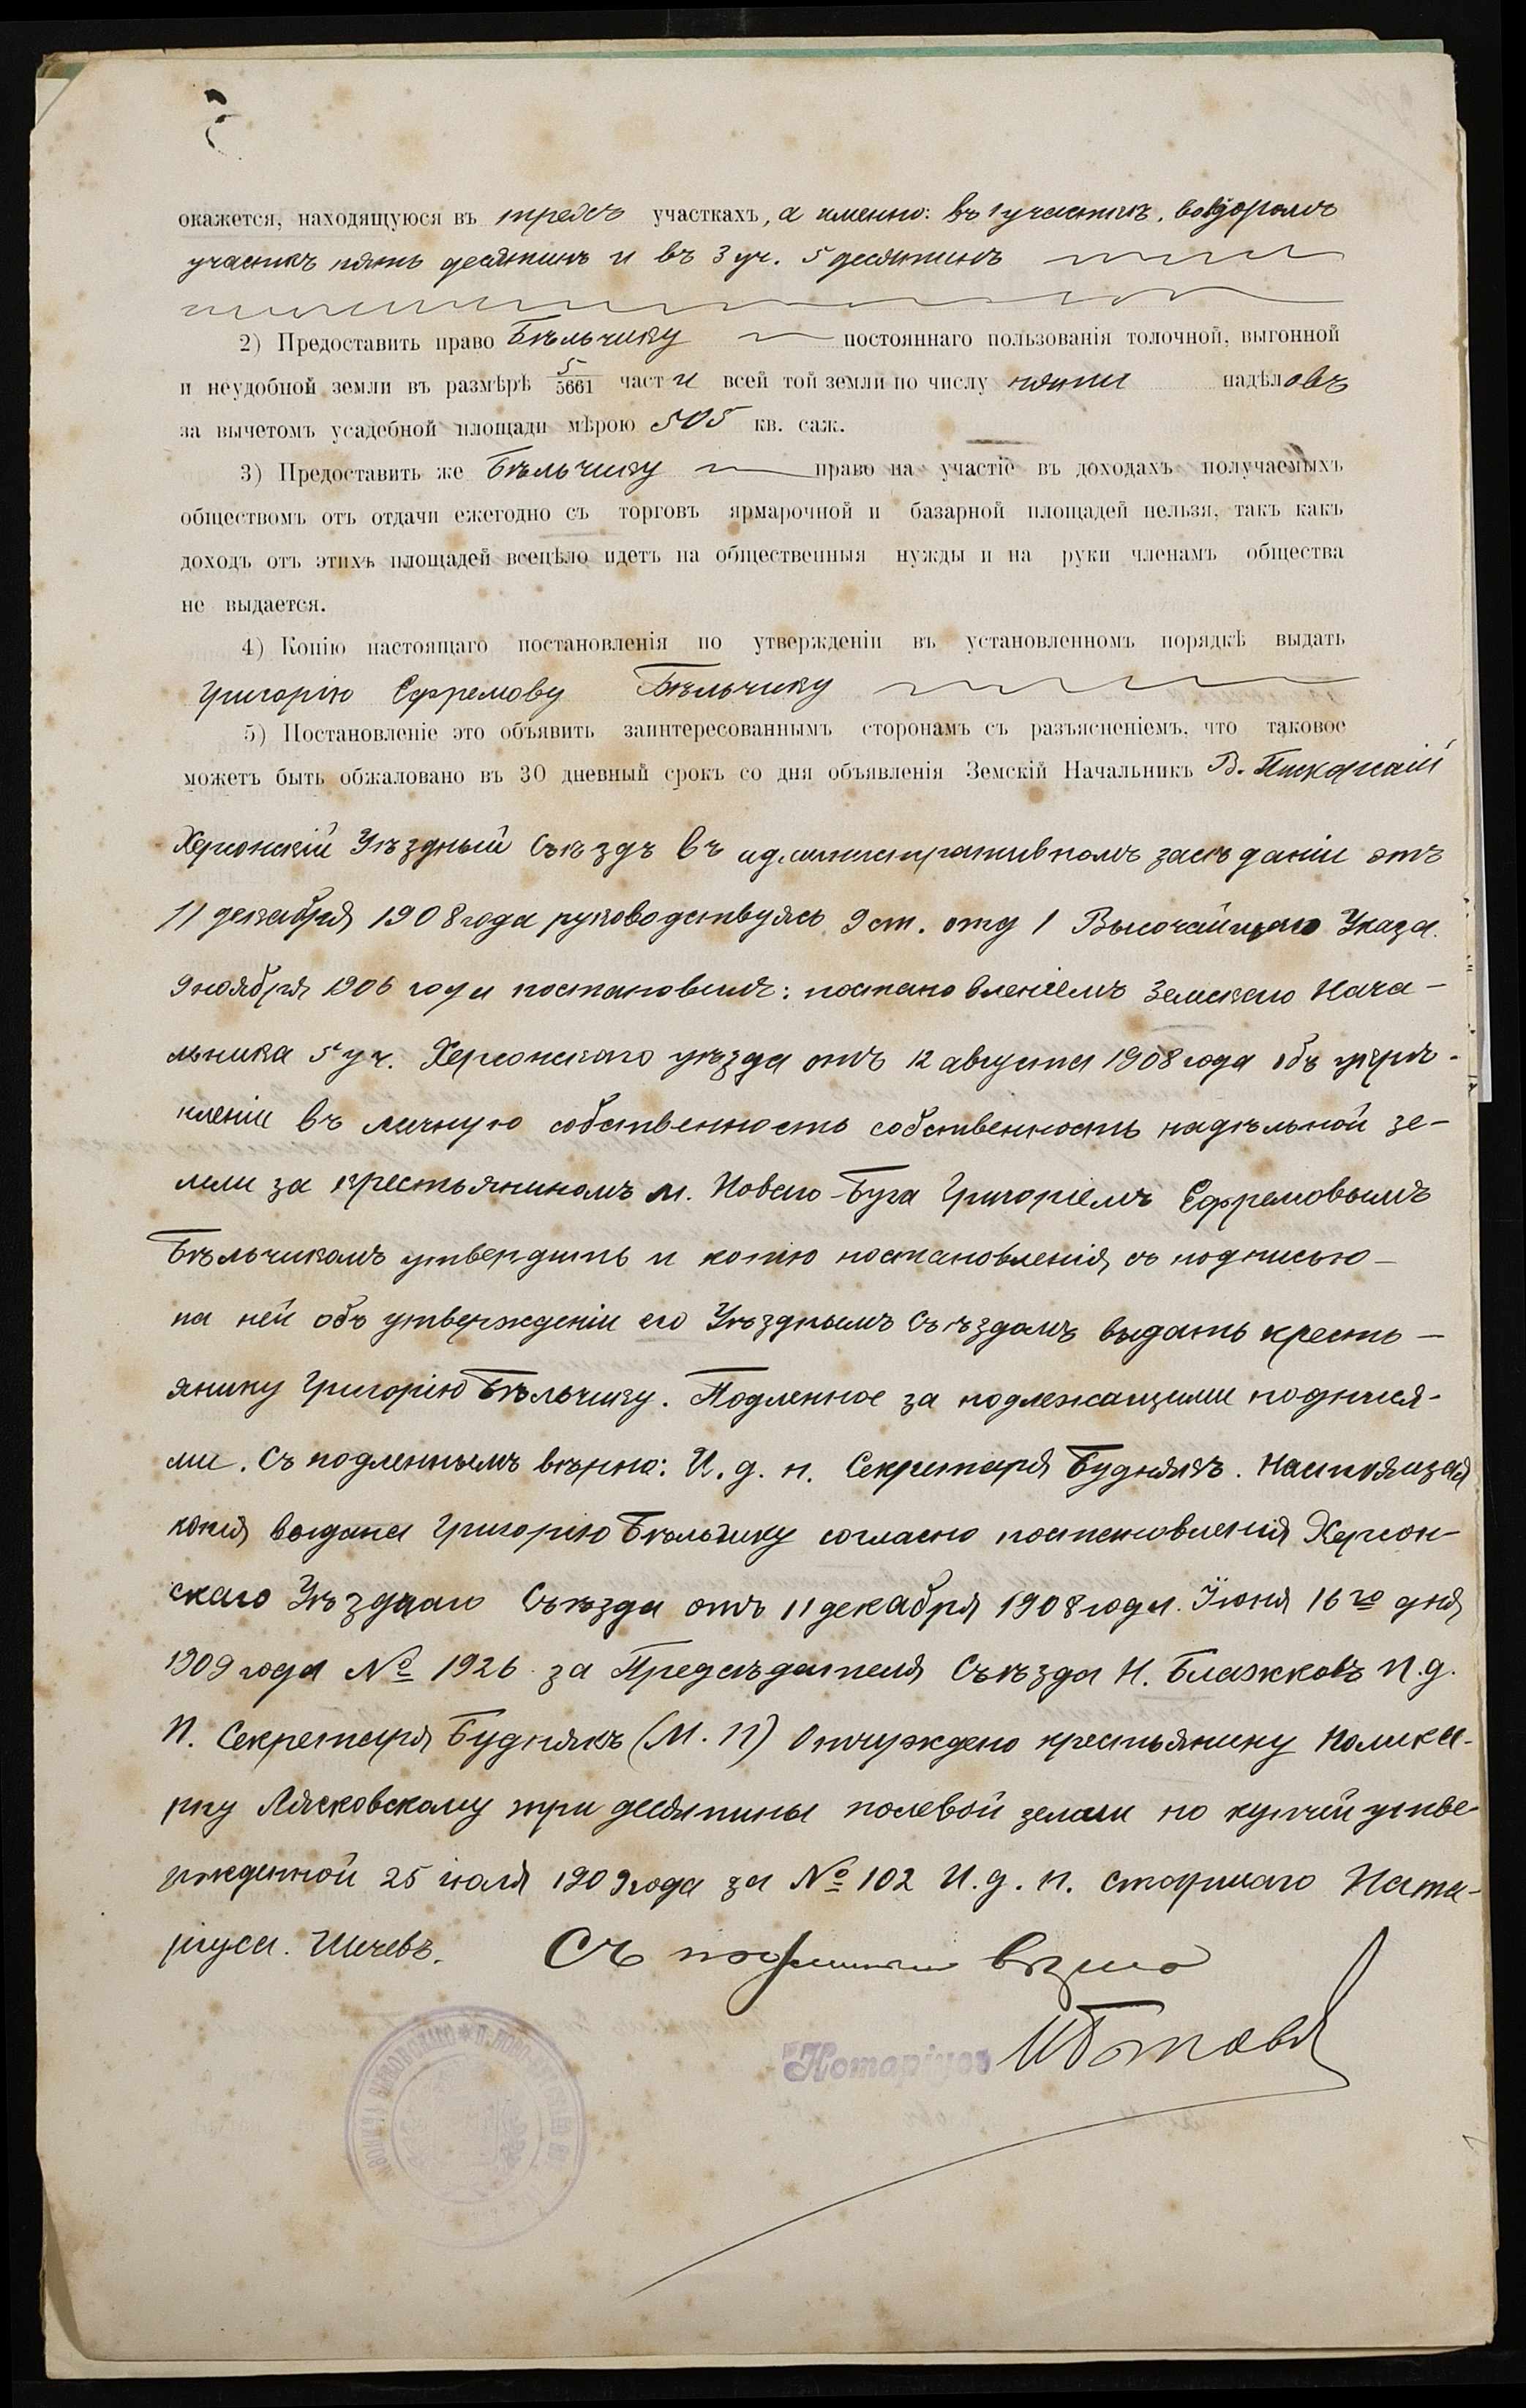 окажется, находящуюся въ трехъ участкахъ, а именно: въ 1 участкъ, вовторомъ
участкъ пять десятинъ и въ 3 уч. 5 десятинъ
2) Предоставить право Бѣльчику постояннаго пользованія толочной, выгонной
и неудобной земли въ размѣрѣ 5/5661 части всей той земли по числу пяти надѣловъ
за вычетомъ усадебной площади мѣрою 505 кв. саж.
3) Предоставить же Бѣльчику право на участіе въ доходахъ получаемыхъ
обществомъ отъ отдачи ежегодно съ торговъ ярмарочной и базарной площадей нельзя, такъ какъ
доходъ отъ этихъ площадей всецѣло идетъ на общественныя нужды и на руки членамъ общества
не выдается.
4) Копію настоящаго постановленія по утвержденіи въ установленномъ порядкѣ выдать
Григорію Ефремову Бѣльчику
5) Постановленіе это объявить заинтересованнымъ сторонамъ съ разъясненіемъ, что таковое
можетъ быть обжаловано въ 30 дневный срокъ со дня объявленія Земскій Начальникъ В.
Херсонскій Уѣздный Съѣздъ въ административномъ засѣданіи отъ
11 декабря 1908 года руководствуясь 9 ст. отд 1 Высочайшаго Указа
9 ноября 1906 года постановилъ: постановленіемъ Земскаго Нача-
льника 5 уч. Херсонскаго уѣзда отъ 12 августа 1908 года объ укрѣ-
пленіи въ личную собственность собственность надѣльной зе-
мли за крестьяниномъ м. Новаго-Буга Григоріемъ Ефремовымъ
Бѣльчикомъ утвердить и копію постановленія съ подписью
на ней объ утвержденіи его Уѣзднымъ Съѣздомъ выдать кресть-
янину Григорію Бѣльчику. Подленное за подлежащими подпися-
ми. Съ подленнымъ вѣрно: И. д. н. Секретаря Буднякъ. Настоящая
копія выдана Григорію Бѣльчику согласно постановленія Херсон-
скаго Уѣзднаго Съѣзда отъ 11 декабря 1908 года. Іюня 16 го дня
1909 года № 1926 за Предсѣдателя Съѣзда Н. Блажковъ И.д.
Н. Секретаря Буднякъ (М. П) Отчуждено крестьянину Полика-
рпу Лясковскому три десятины полевой земли по купчей утве-
ржденной 25 іюля 1909 года за № 102 И. д. н. Старшаго Нота-
ріуса.
Съ подлиннымъ вѣрно
Нотаріусъ